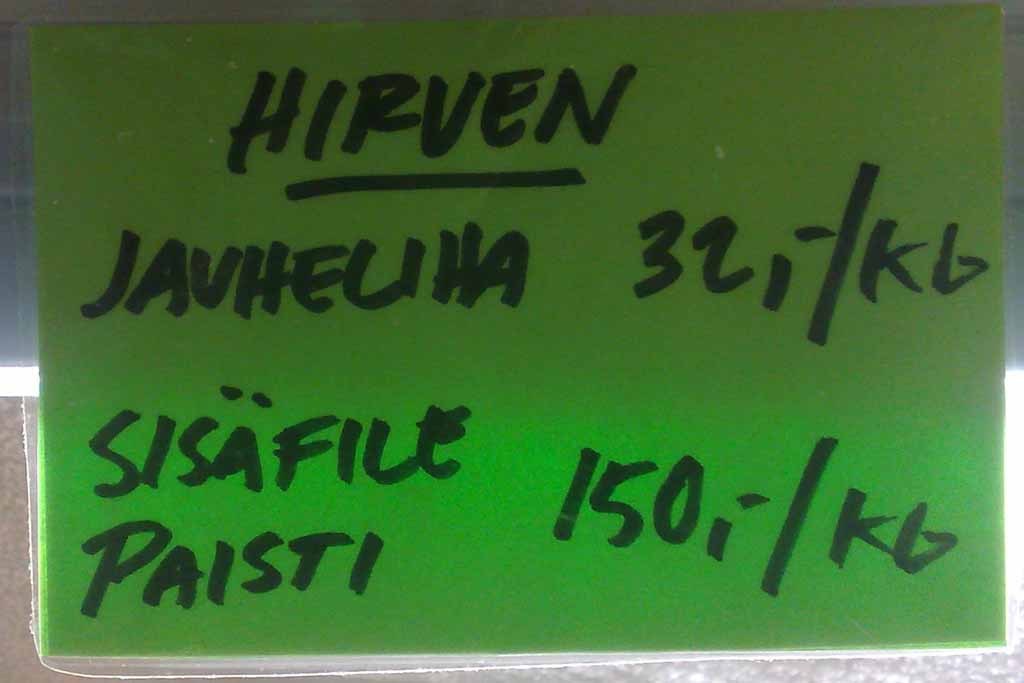 HIRVEN
JAUHELIHA 32,-/KG
SISÄFILE
PAISTI 150,-/KG